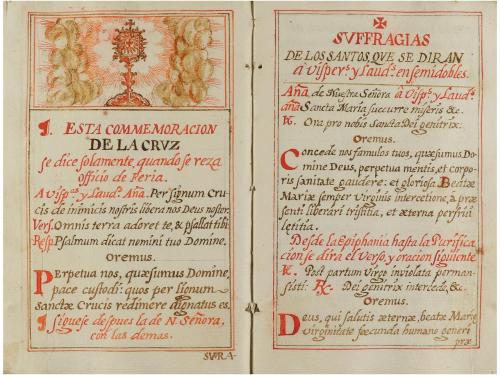 ¶. ESTA COMMEMORACION
DE LA CRVZ
se dice solamente, quando se reza
officio de Feria.
A Visps. y Laud.s Aña. Per signum Cru-
cis de inimicis nostris libera nos Deus noster.
Vers. Omnis terra adoret te, & psallat tibi.
Resp. Psalmum dicat nomini tuo Domine.
Oremus.
Perpetua nos, quæsumus Domine,
pace custodi: quos per lignum
sanctæ Crucis redimere dignatus es.
¶ siguese despues la de N. Señora,
con las demas.
SVFRA-
SVFFRAGIAS
DE LOS SANTOS, QVE SE DIRAN
à Visper.s y Laud.s en semidobles.
Aña. de Nuestra Señora à Visp.s y Laud.s
aña Sancta Maria succurre miseris &c.
℣. Ora pro nobis Sancta Dei genitrix.
Oremus.
Concede nos famulos tuos, quæsumus Do-
mine Deus, perpetua mentis, et corpo-
ris sanitate gaudere: et gloriosa Beatæ
Mariæ semper Virginis intercectione, à præ-
senti liberari tristitia, et æterna perfrui
letitia.
Desde la Epiphania hasta la Purifica-
cion se dira el Verso, y oracion siguiente
℣. Post partum Virgo inviolata perman-
sisti. ℟. Dei genitrix intercede, &c
Oremus.
Deus, qui salutis æternæ, beatæ Mariæ
virginitate fœcunda humano generi
præ